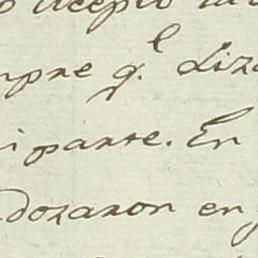 acepto
mpre q.l Liza
i parte. En
dozaron en